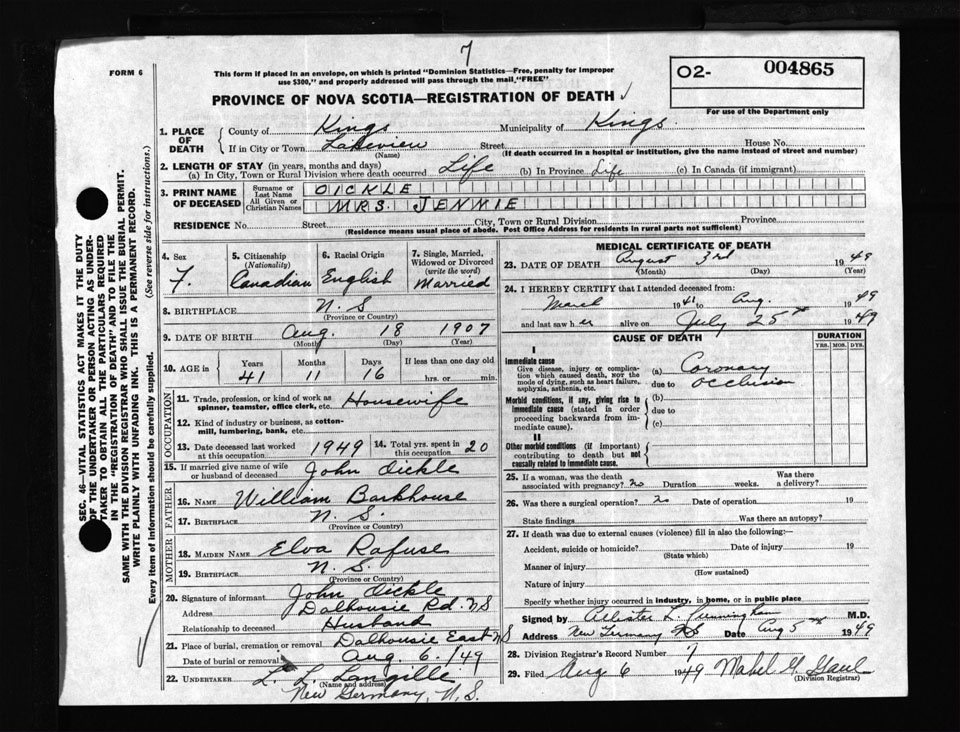 7
FORM 6
This form if placed in an envelope, on which is printed "Dominion Statistics—Free, penalty for improper
use $300," and properly addressed will pass through the mail "FREE"
O2- 004865
For use of the Department only
PROVINCE OF NOVA SCOTIA—REGISTRATION OF DEATH
1. PLACE OF DEATH
County of Kings Municipality of Kings
If in City or Town Lakeview Street House No.
(Name) (If death occurred in a hospital or institution, give the name instead of street and number)
2. LENGTH OF STAY (in years, months and days)
(a) In City, Town or Rural Division where death occurred Life (b) In Province Life (c) In Canada (if immigrant)
3. PRINT NAME OF DECEASED
Surname or Last Name OICKLE
All Given or Christian Names MRS. JENNIE
RESIDENCE No. Street City, Town or Rural Division Province
(Residence means usual place of abode. Post Office Address for residents in rural parts not sufficient)
4. Sex F.
5. Citizenship (Nationality) Canadian
6. Racial Origin English
7. Single, Married, Widowed or Divorced (write the word) Married
8. BIRTHPLACE N. S
(Province or Country)
9. DATE OF BIRTH Aug. 18 1907
(Month) (Day) (Year)
10. AGE in Years 41 Months 11 Days 16 If less than one day old hrs. or min.
OCCUPATION
11. Trade, profession, or kind of work as spinner, teamster, office clerk, etc. Housewife
12. Kind of industry or business, as cotton-mill, lumbering, bank, etc.
13. Date deceased last worked at this occupation 1949 14. Total yrs. spent in this occupation 20
15. If married give name of wife or husband of deceased John Oickle
FATHER
16. NAME William Barkhouse
17. BIRTHPLACE N. S.
(Province or Country)
MOTHER
18. MAIDEN NAME Elva Rafuse
19. BIRTHPLACE N. S.
(Province or Country)
20. Signature of informant John Oickle
Address Dalhousie Rd. NS
Relationship to deceased Husband
21. Place of burial, cremation or removal Dalhousie East NS
Date of burial or removal Aug. 6/49
22. UNDERTAKER L. L. Langille
(Name and address)
New Germany, N. S.
MEDICAL CERTIFICATE OF DEATH
23. DATE OF DEATH August 3rd 1949
(Month) (Day) (Year)
24. I HEREBY CERTIFY that I attended deceased from:
March 1941 to Aug. 1949
and last saw her alive on July 25th 1949
CAUSE OF DEATH
DURATION
YRS. MOS. DYS.
I
Immediate cause
Give disease, injury or complication which caused death, not the mode of dying, such as heart failure, asphyxia, asthenia, etc.
(a) Coronary
due to occlusion
Morbid conditions, if any, giving rise to immediate cause (stated in order proceeding backwards from immediate cause).
(b)
due to
(c)
II
Other morbid conditions (if important) contributing to death but not causally related to immediate cause.
25. If a woman, was the death associated with pregnancy? No Duration weeks. Was there a delivery?
26. Was there a surgical operation? No Date of operation 19
State findings Was there an autopsy?
27. If death was due to external causes (violence) fill in also the following:—
Accident, suicide or homicide? Date of injury 19
(State which)
Manner of injury
(How sustained)
Nature of injury
Specify whether injury occurred in industry, in home, or in public place
Signed by M.D.
Address New Germany NS Date Aug 5th 1949
28. Division Registrar's Record Number 7
29. Filed Aug 6 1949 Mabel G. Gaul
(Division Registrar)
SEC. 46—VITAL STATISTICS ACT MAKES IT THE DUTY
OF THE UNDERTAKER OR PERSON ACTING AS UNDER-
TAKER TO OBTAIN ALL THE PARTICULARS REQUIRED
IN THE "REGISTRATION OF DEATH" AND TO FILE THE
SAME WITH THE DIVISION REGISTRAR WHO SHALL ISSUE THE BURIAL PERMIT.
WRITE PLAINLY WITH UNFADING INK. THIS IS A PERMANENT RECORD.
Every item of information should be carefully supplied. (See reverse side for instructions.)